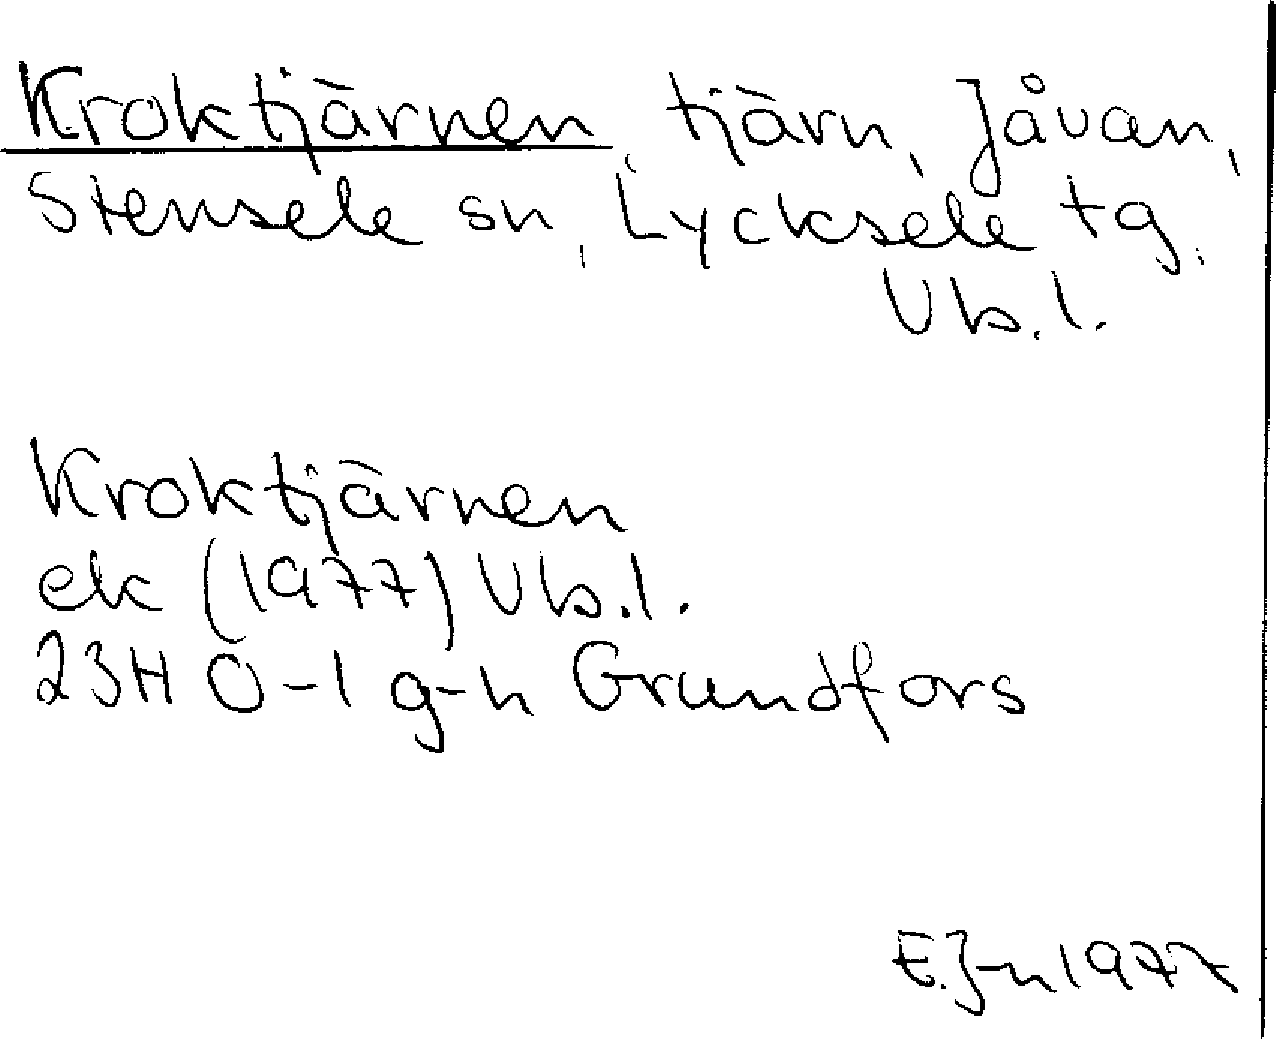 Kroktjärnen, tjärn, Jåvan,
Stensele sn, Lycksele tg.
Vb.l.
Kroktjärnen
ek (1977) Vb.l.
23H Ö-1 g-h Grundfors
E.J-n 1977